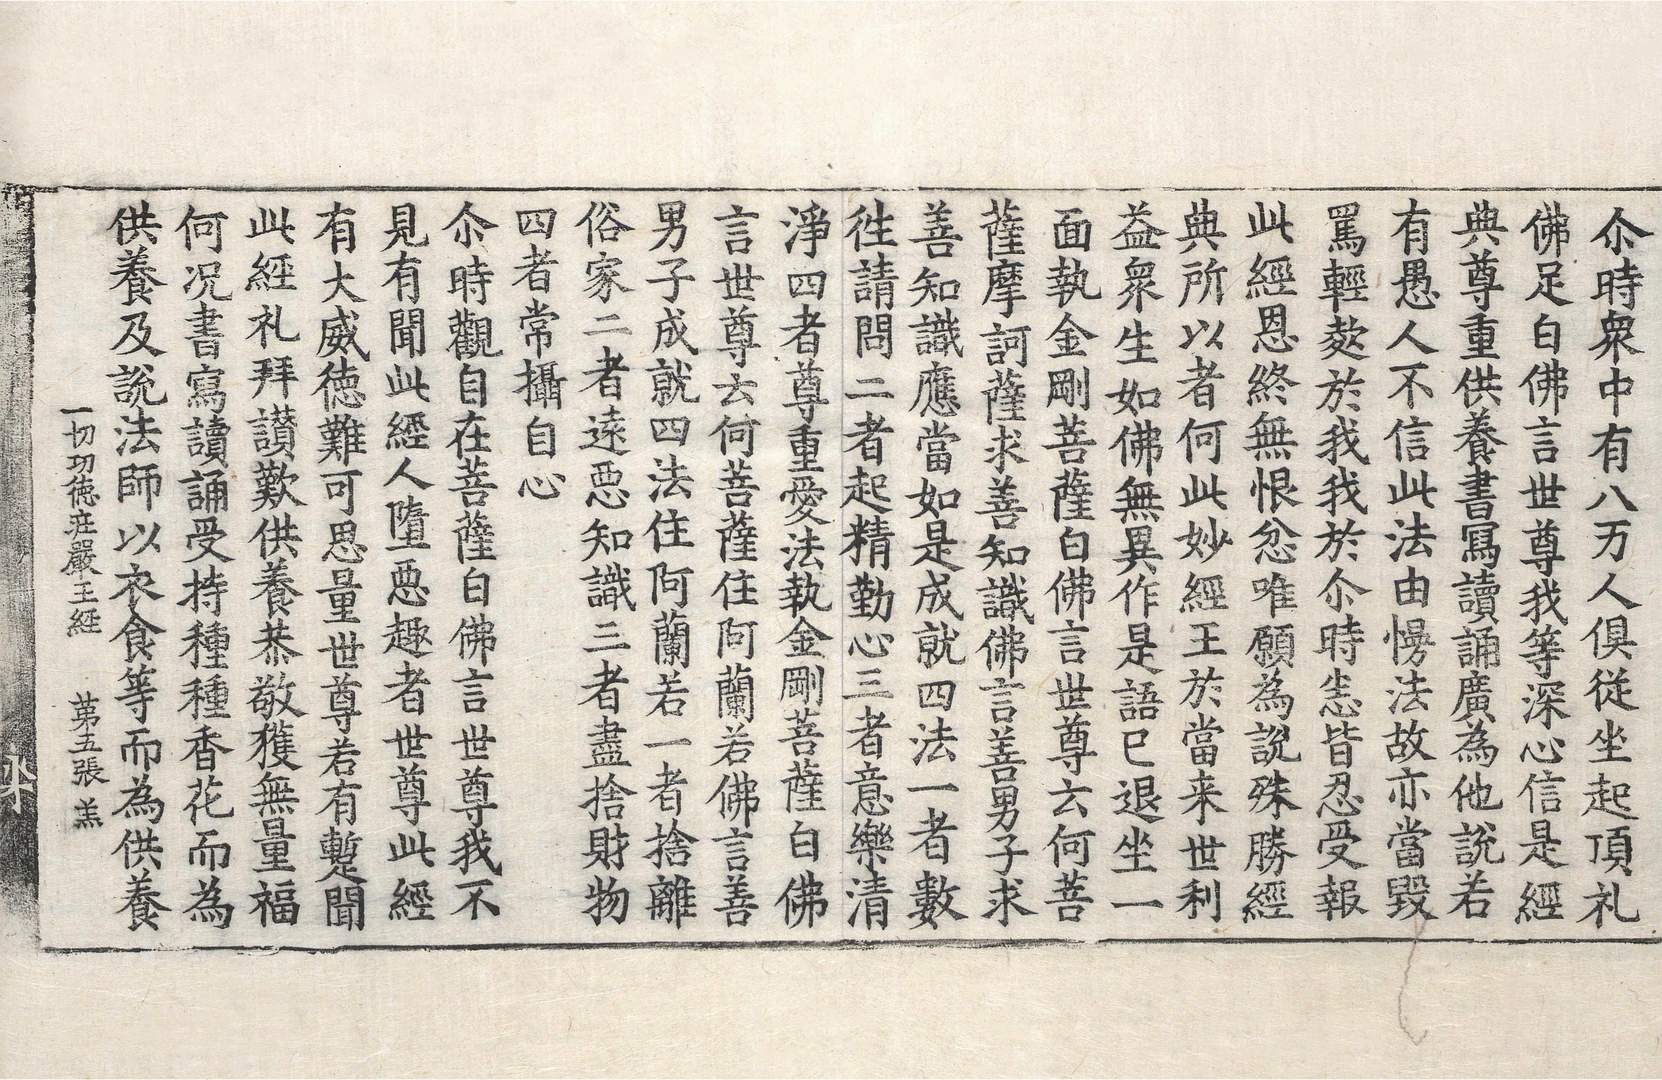 尒時衆中有八万人俱従坐起頂礼
佛足白佛言世尊我等深心信是經
典尊重供養書寫讀誦廣為他說若
有愚人不信此法由慢法故亦當毀
罵輕欺於我我於尒時恚皆忍受報
此經恩終無恨忿唯願為說殊勝經
典所以者何此妙經王於當来世利
益衆生如佛無異作是語已退坐一
面執金剛菩薩白佛言世尊云何菩
薩摩訶薩求善知識佛言善男子求
善知識應當如是成就四法一者數
徃請問二者起精勤心三者意樂清
淨四者尊重愛法執金剛菩薩白佛
言世尊云何菩薩住阿蘭若佛言善
男子成就四法住阿蘭若一者捨離
俗家二者遠惡知識三者盡捨財物
四者常攝自心
尒時觀自在菩薩白佛言世尊我不
見有聞此經人墮惡趣者世尊此經
有大威德難可思量世尊若有蹔聞
此經礼拜讃歎供養恭敬獲無量福
何況書寫讀誦受持種種香花而為
供養及說法師以衣食等而為供養
一切功徳莊嚴王經 苐五張 羔
染